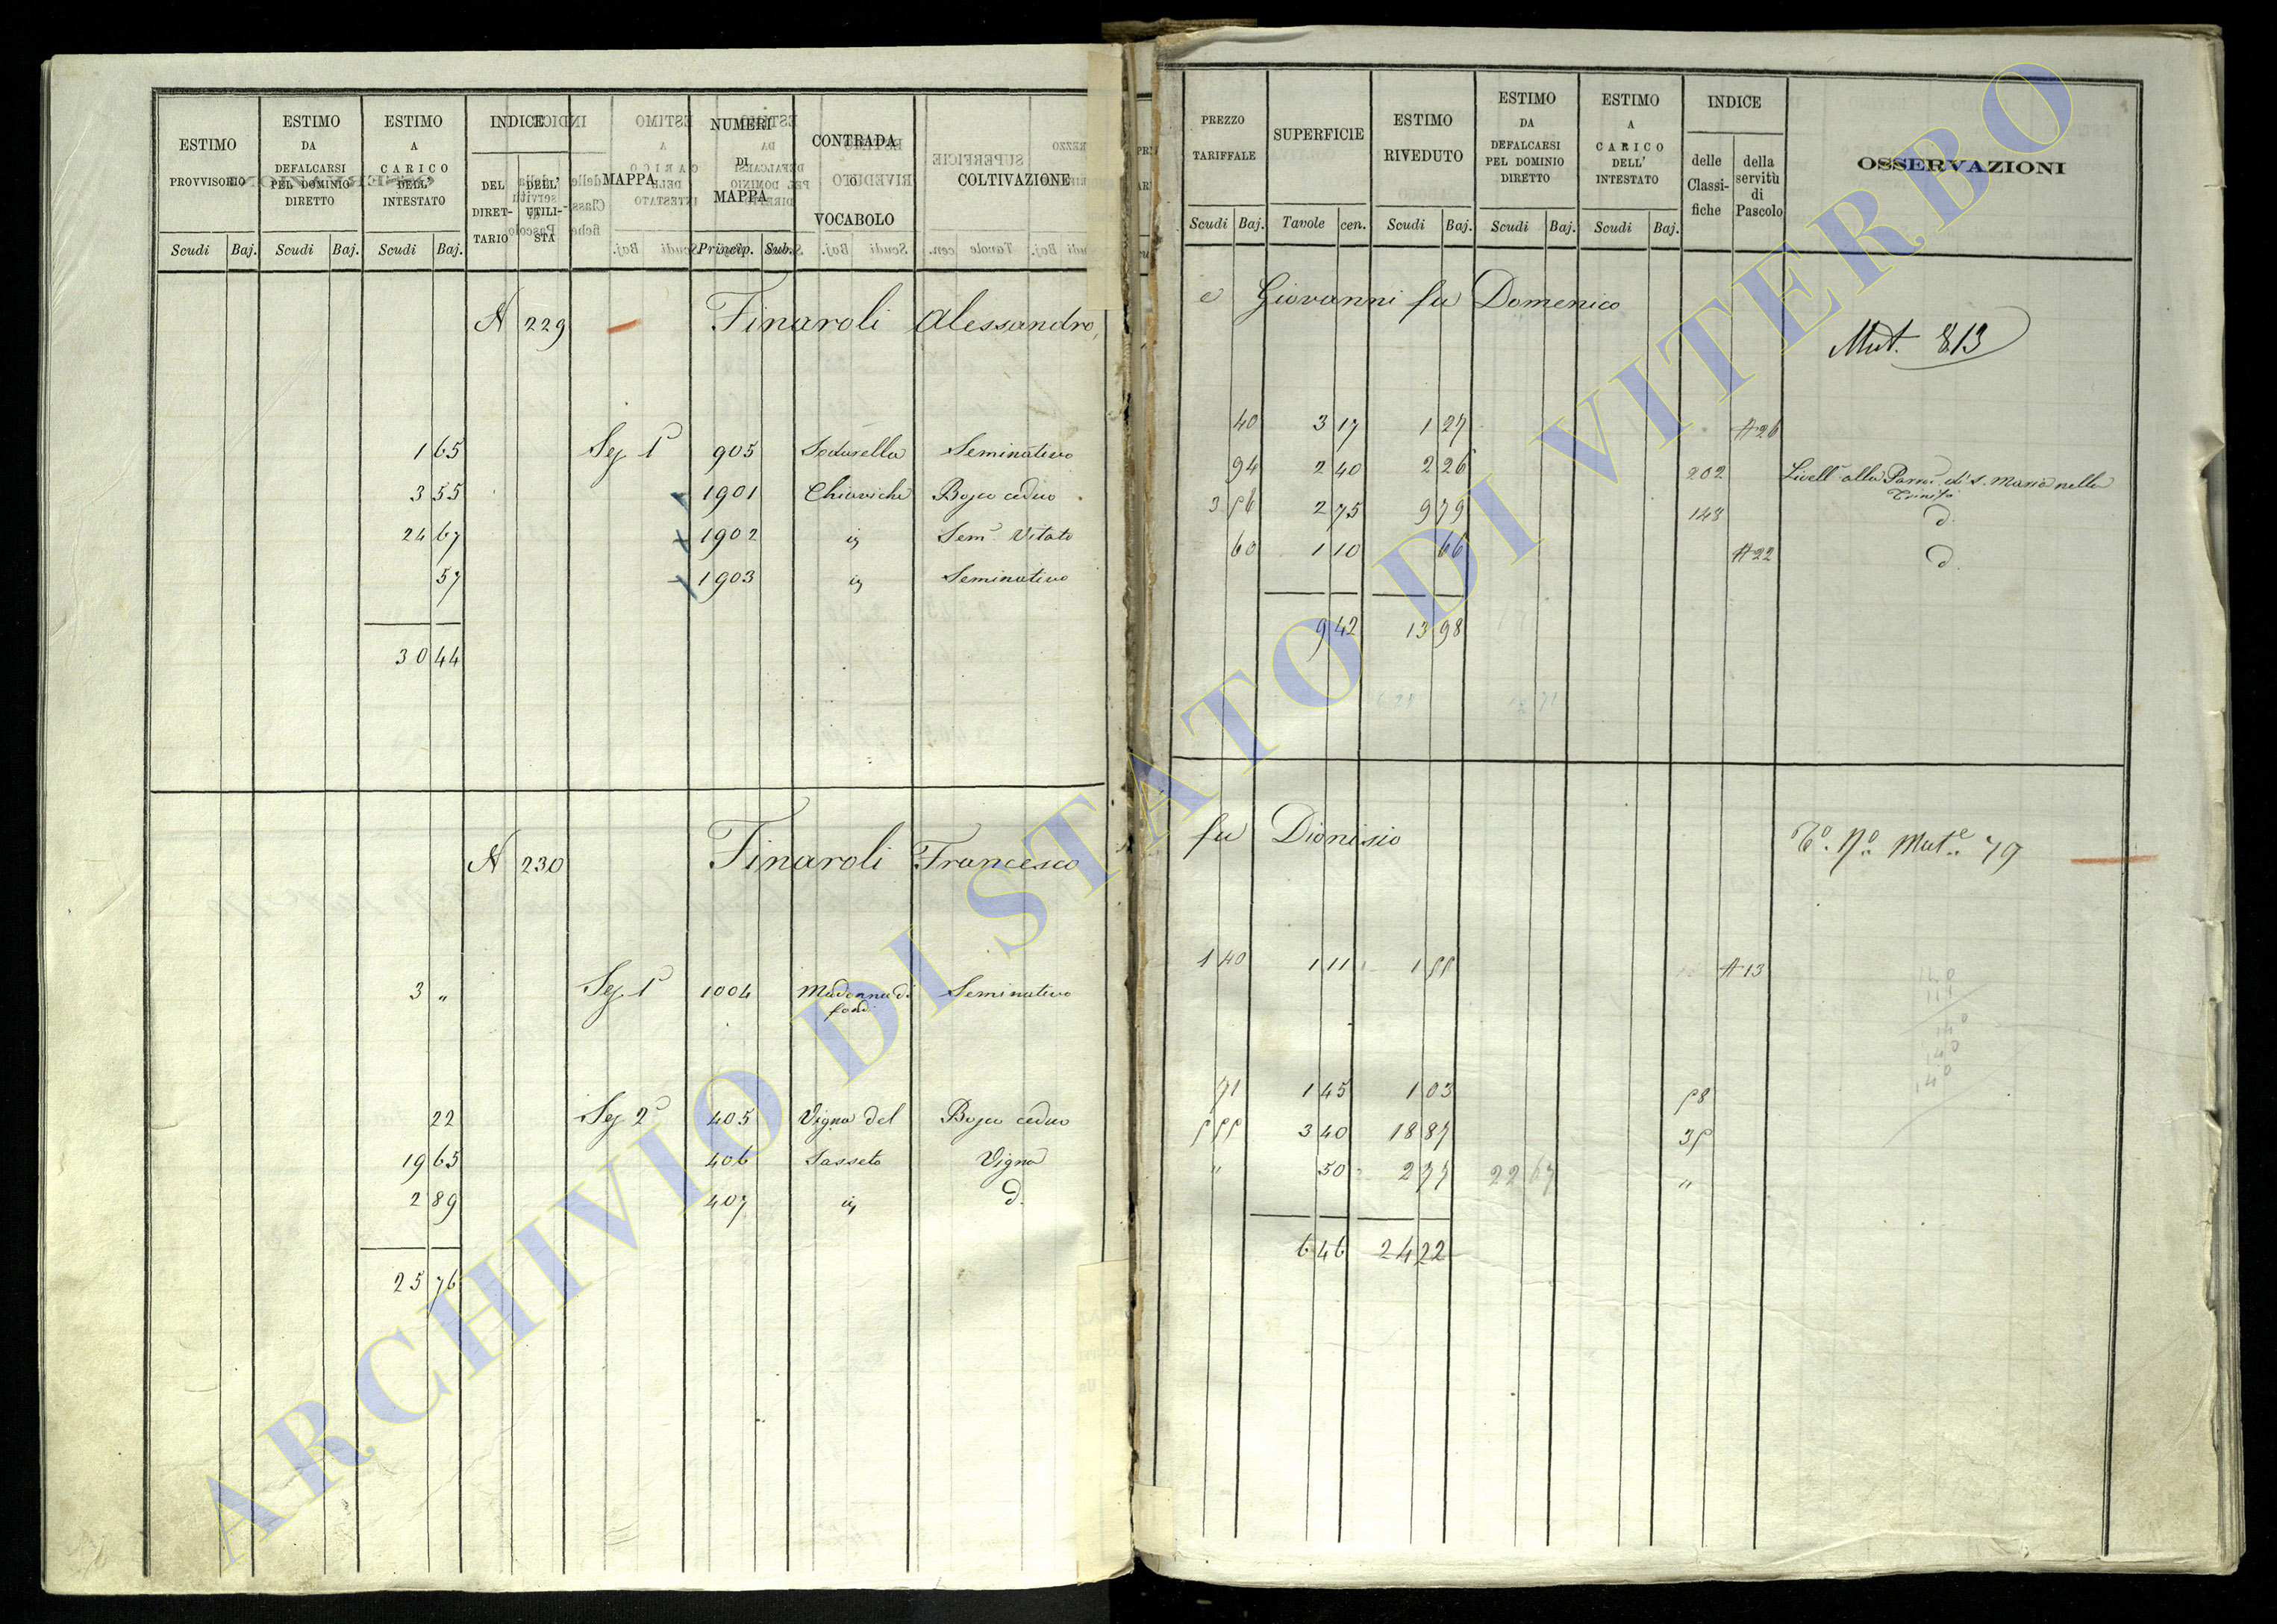 ESTIMO PROVVISORIO | ESTIMO DA DEFALCARSI PEL DOMINIO DIRETTO | ESTIMO A CARICO DELL' INTESTATO | INDICE | MAPPA | NUMERI DI MAPPA | CONTRADA O VOCABOLO | COLTIVAZIONE
DEL DIRETTARIO | DELL' UTILISTA
Scudi | Baj. | Scudi | Baj. | Scudi | Baj. | Princip. | Sub.
N 229 Finaroli Alessandro,
1 65 Sez 1ª 905 Seminativo
3 55 1901 Chiaviche Bosco ceduo
24 67 1902 id Semº Vitato
57 1903 id Seminativo
30 44
N 230 Finaroli Francesco
3 " Sez 1ª 1004 Madonna di Seminativo
22 Sez 2ª 405 Vigna del Bosco ceduo
19 65 406 Sasseto Vigna
2 89 407 id d.
25 76
PREZZO TARIFFALE | SUPERFICIE | ESTIMO RIVEDUTO | ESTIMO DA DEFALCARSI PEL DOMINIO DIRETTO | ESTIMO A CARICO DELL' INTESTATO | INDICE | OSSERVAZIONI
delle Classifiche | della servitù di Pascolo
Scudi | Baj. | Tavole | cen. | Scudi | Baj. | Scudi | Baj. | Scudi | Baj.
e Giovanni fu Domenico
Mut. 813
40 3 17 1 27 A 26
94 2 40 2 26 202 Livellº alla Parrª di S. Maria nella
Trinità
3 56 2 75 9 79 143 d.
60 1 10 66 A 22 d.
9 42 13 98
fu Dionisio
Mutº 79
1 40 1 11 1 55 A 13
71 1 45 1 03 58
5 55 3 40 18 87 35
" 50 2 77 22 67 "
6 46 24 22
140
111
140
140
140
ARCHIVIO DI STATO DI VITERBO